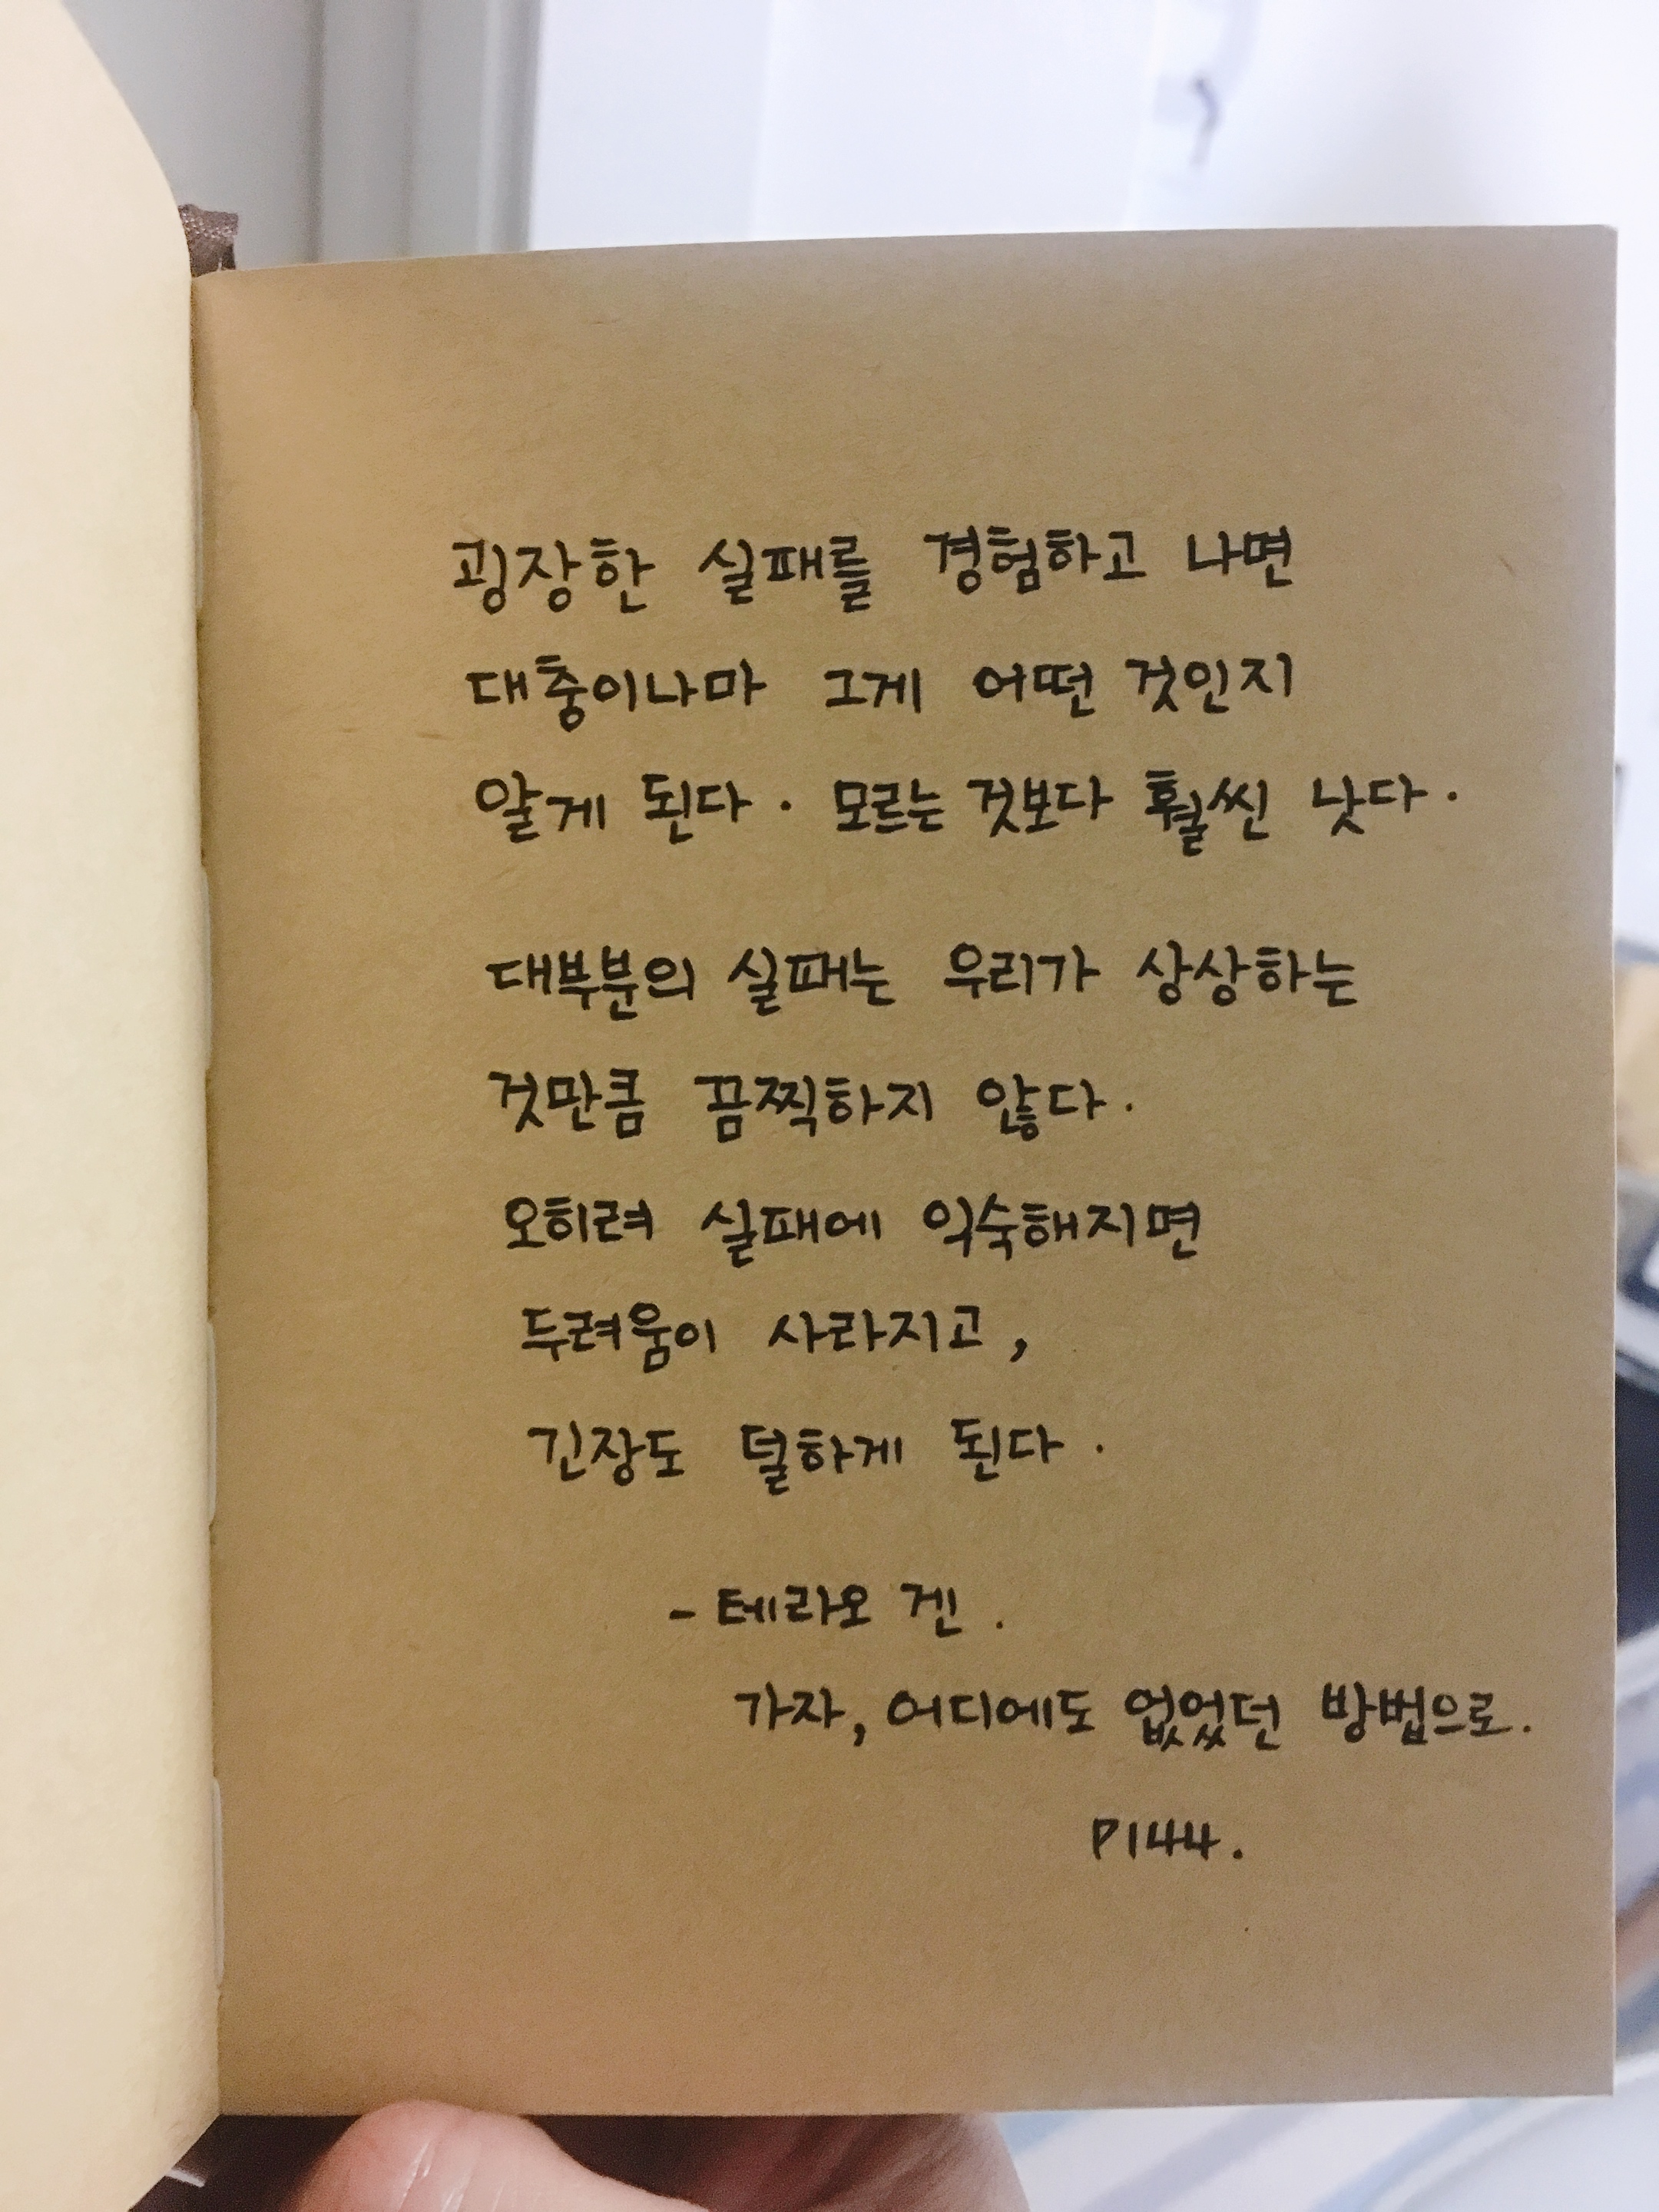 굉장한 실패를 경험하고 나면
대충이나마 그게 어떤 것인지
알게 된다. 모르는 것보다 훨씬 낫다.
대부분의 실패는 우리가 상상하는
것만큼 끔찍하지 않다.
오히려 실패에 익숙해지면
두려움이 사라지고,
긴장도 덜하게 된다.
- 테라오 겐.
가자, 어디에도 없었던 방법으로.
P144.